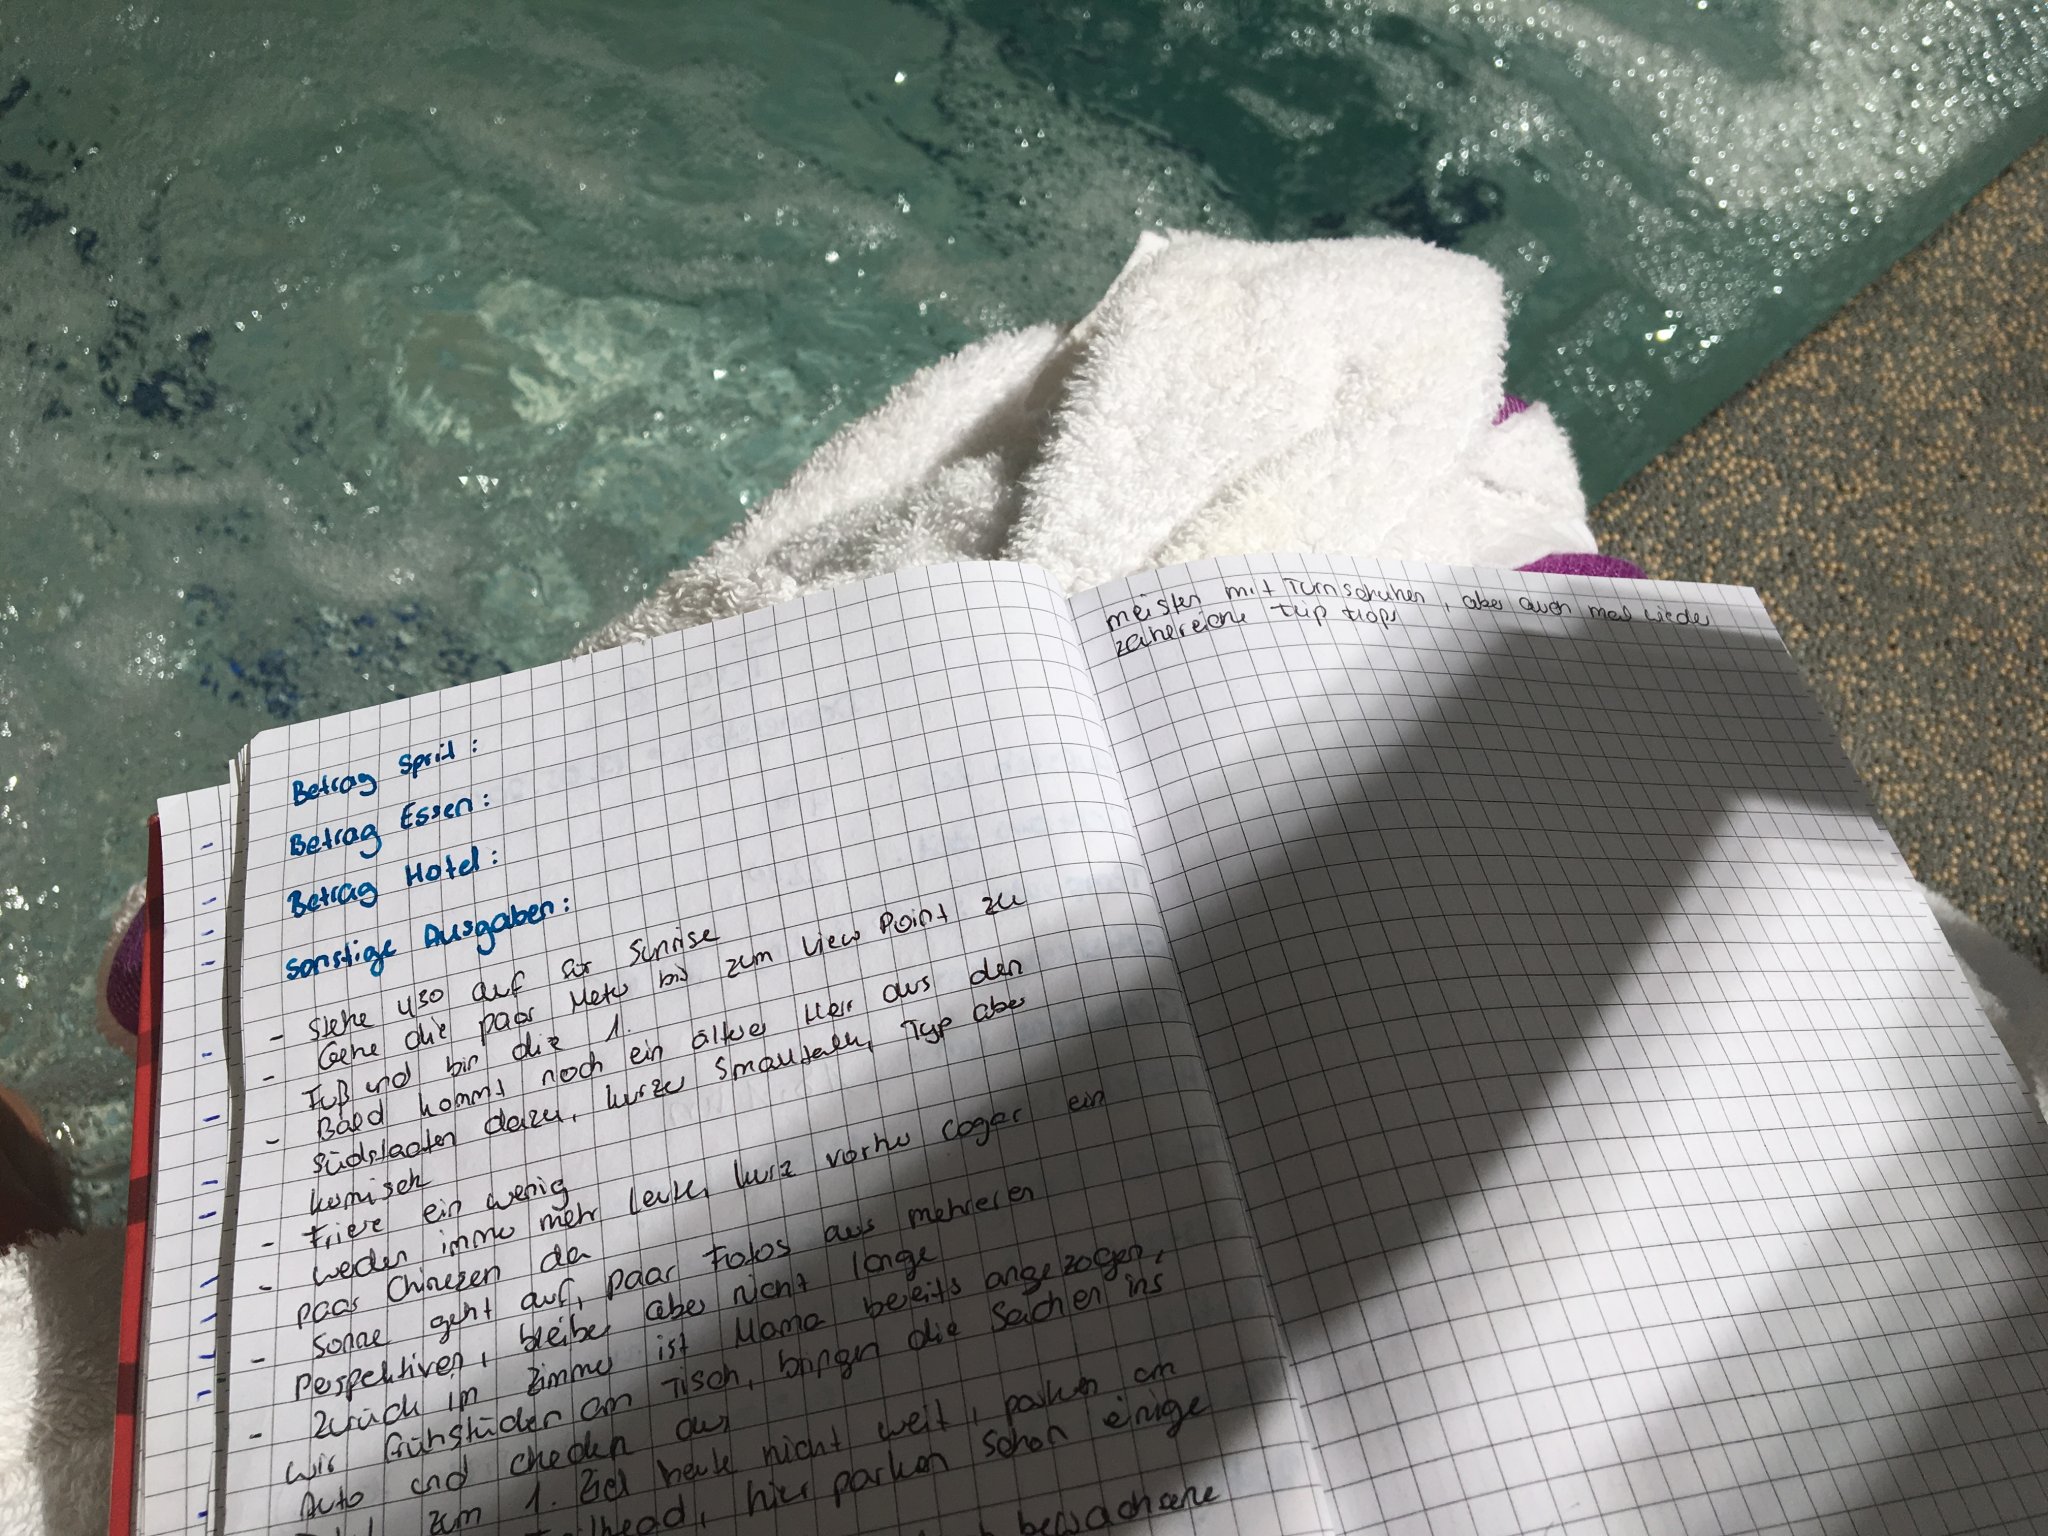 Betrag Sprit:
Betrag Essen:
Betrag Hotel:
Sonstige Ausgaben:
- Stehe 430 auf für Sunrise
- Gehe die paar Meter bis zum View Point zu
Fuß und bin die 1.
- Bald kommt noch ein älterer Herr aus den
Südstaaten dazu, kurzer Smalltalk, Typ aber
komisch
- Friere ein wenig
- Werden immer mehr Leute, kurz vorher sogar ein
paar Chinesen da
- Sonne geht auf, paar Fotos aus mehreren
Perspektiven, bleiber aber nicht lange
- Zurück im Zimmer ist Mama bereits angezogen,
wir frühstücken am Tisch, bringen die Sachen ins
Auto und checken aus
zum 1. Ziel heute nicht weit, parken am
hier parken schon einige
bewachsene
meisten mit Turnschuhen, aber auch mal wieder
zahlreiche flip flops